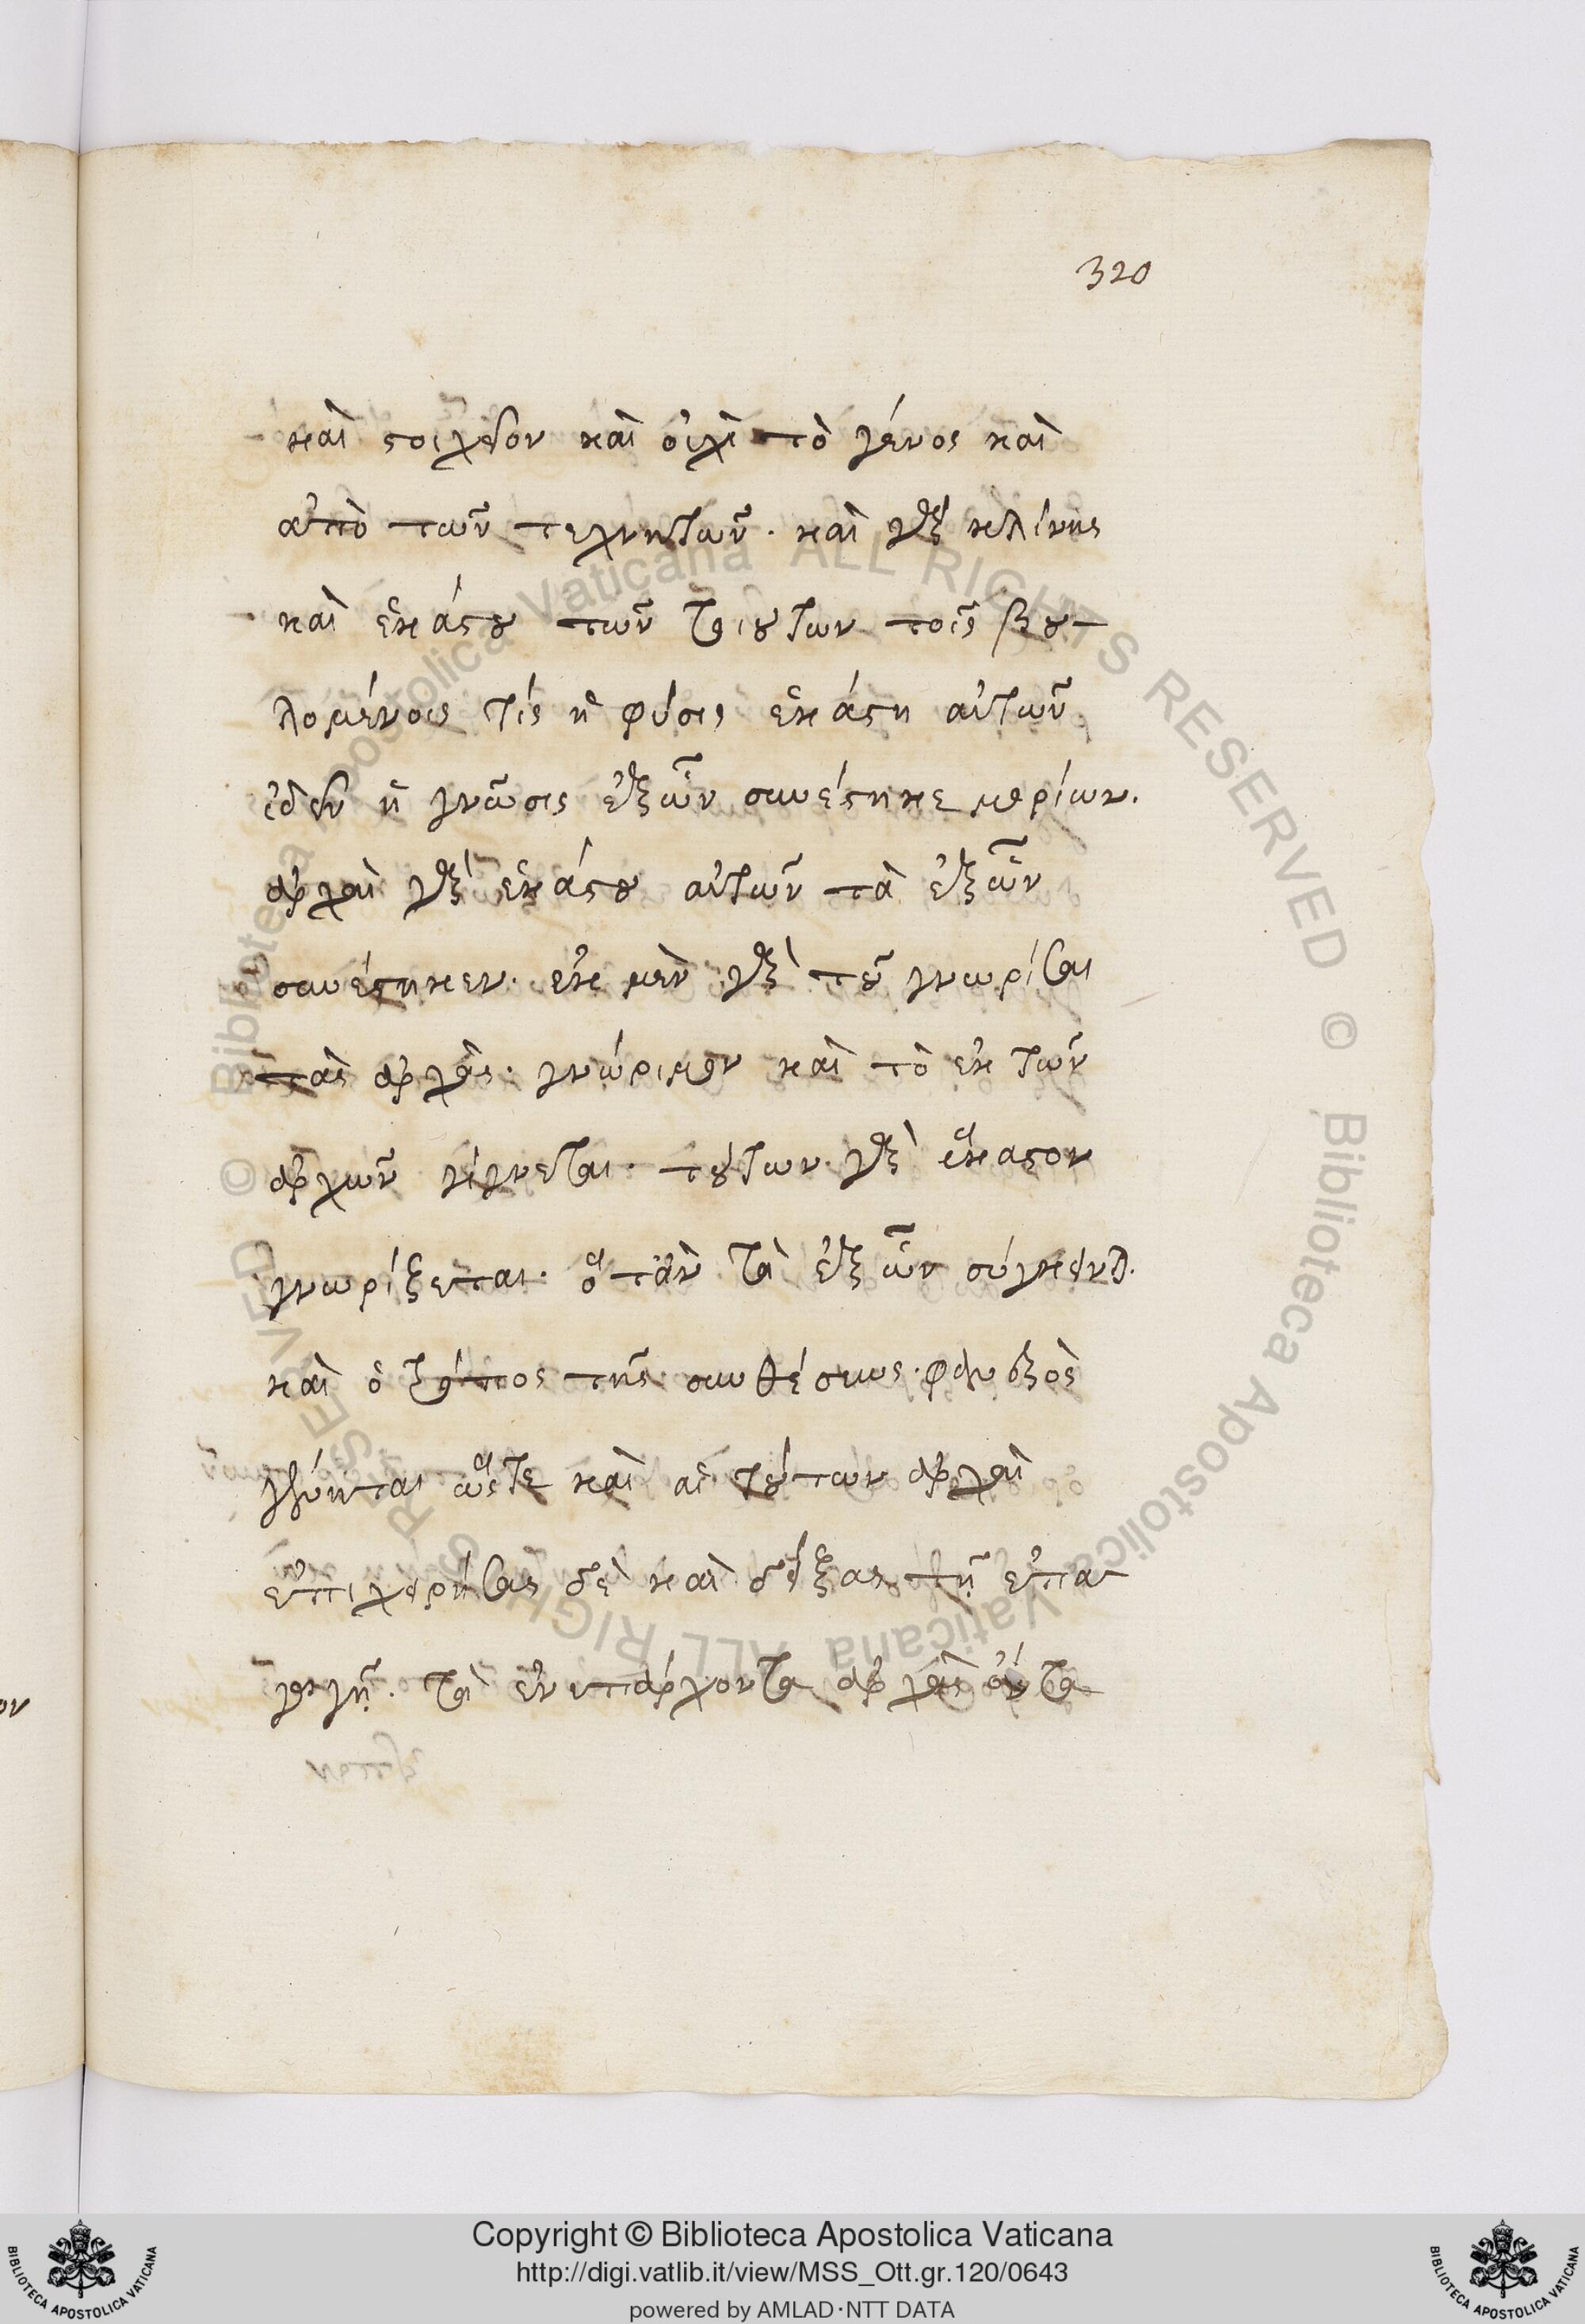 320
καὶ στοιχεῖον καὶ οὐχὶ τὸ γένος καὶ
ἀπὸ τῶν τεχνητῶν. καὶ γὰρ κλίνης
καὶ ἑκάστου τῶν τοιούτων τοῖς βου-
λομένοις τίς ἡ φύσις ἑκάστη αὐτῶν
ἰδεῖν ἡ γνῶσις ἐξ ὧν συνέστηκε μορίων.
ἀρχαὶ γὰρ ἑκάστου αὐτῶν τὰ ἐξ ὧν
συνέστηκεν. ἐκ μὲν γὰρ τοῦ γνωρίσαι
τὰς ἀρχὰς. γνώριμον καὶ τὸ ἐκ τῶν
ἀρχῶν γίγνεται. τούτων γὰρ ἕκαστον
γνωρίζεται. ὅταν τὰ ἐξ ὧν σύγκειται.
καὶ ὁ τρόπος τῆς συνθέσεως. φανερὸς
γένηται ὥστε καὶ αἱ τούτων ἀρχαὶ
ἐπιχειρήσας δὲ καὶ δείξας τῇ ἐπα
γωγῇ. τὰ ἐνυπάρχοντα ἀρχὰς ὄντα
Copyright © Biblioteca Apostolica Vaticana
http://digi.vatlib.it/view/MSS_Ott.gr.120/0643
powered by AMLAD·NTT DATA
BIBLIOTECA APOSTOLICA VATICANA
BIBLIOTECA APOSTOLICA VATICANA
© Biblioteca Apostolica Vaticana ALL RIGHTS RESERVED © Biblioteca Apostolica Vaticana ALL RIGHTS RESERVED